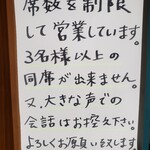 席数を制限
して営業しています。
3名様以上の
同席が出来ません。
又、大きな声での
会話はお控え下さい。
よろしくお願いいたします。